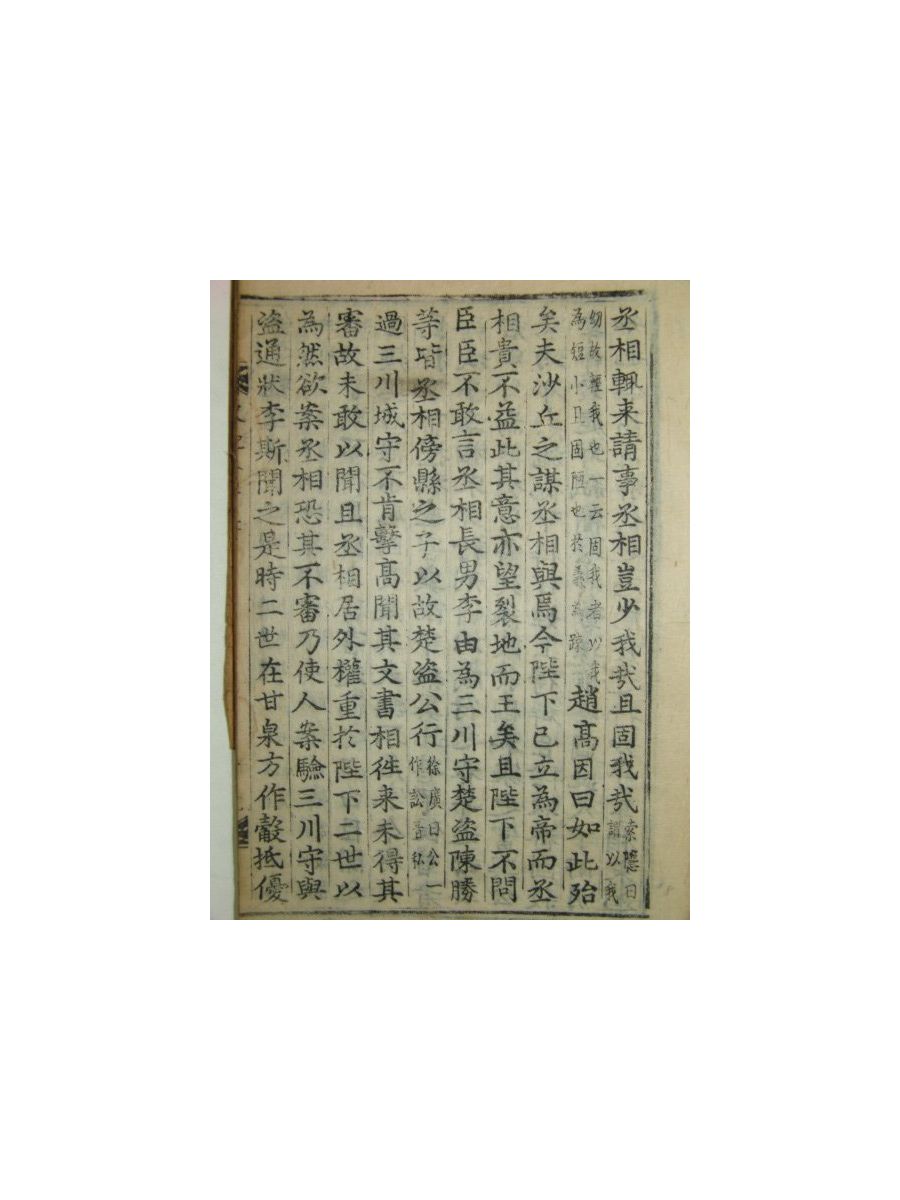 丞相輒来請事丞相豈少我㢤且固我㢤索隱曰謂以我
幼故輕我也一云固我者以我為短小且固陋也於義為疎趙髙因曰如此殆
矣夫沙丘之謀丞相與焉今陛下已立為帝而丞
相貴不益此其意亦望裂地而王矣且陛下不問
臣臣不敢言丞相長男李由為三川守楚盜陳勝
等皆丞相傍縣之子以故楚盜公行徐廣曰公一作訟音私
過三川城守不肯擊髙聞其文書相徃来未得其
審故未敢以聞且丞相居外權重於陛下二世以
為然欲案丞相恐其不審乃使人案驗三川守與
盜通狀李斯聞之是時二世在甘泉方作觳抵優